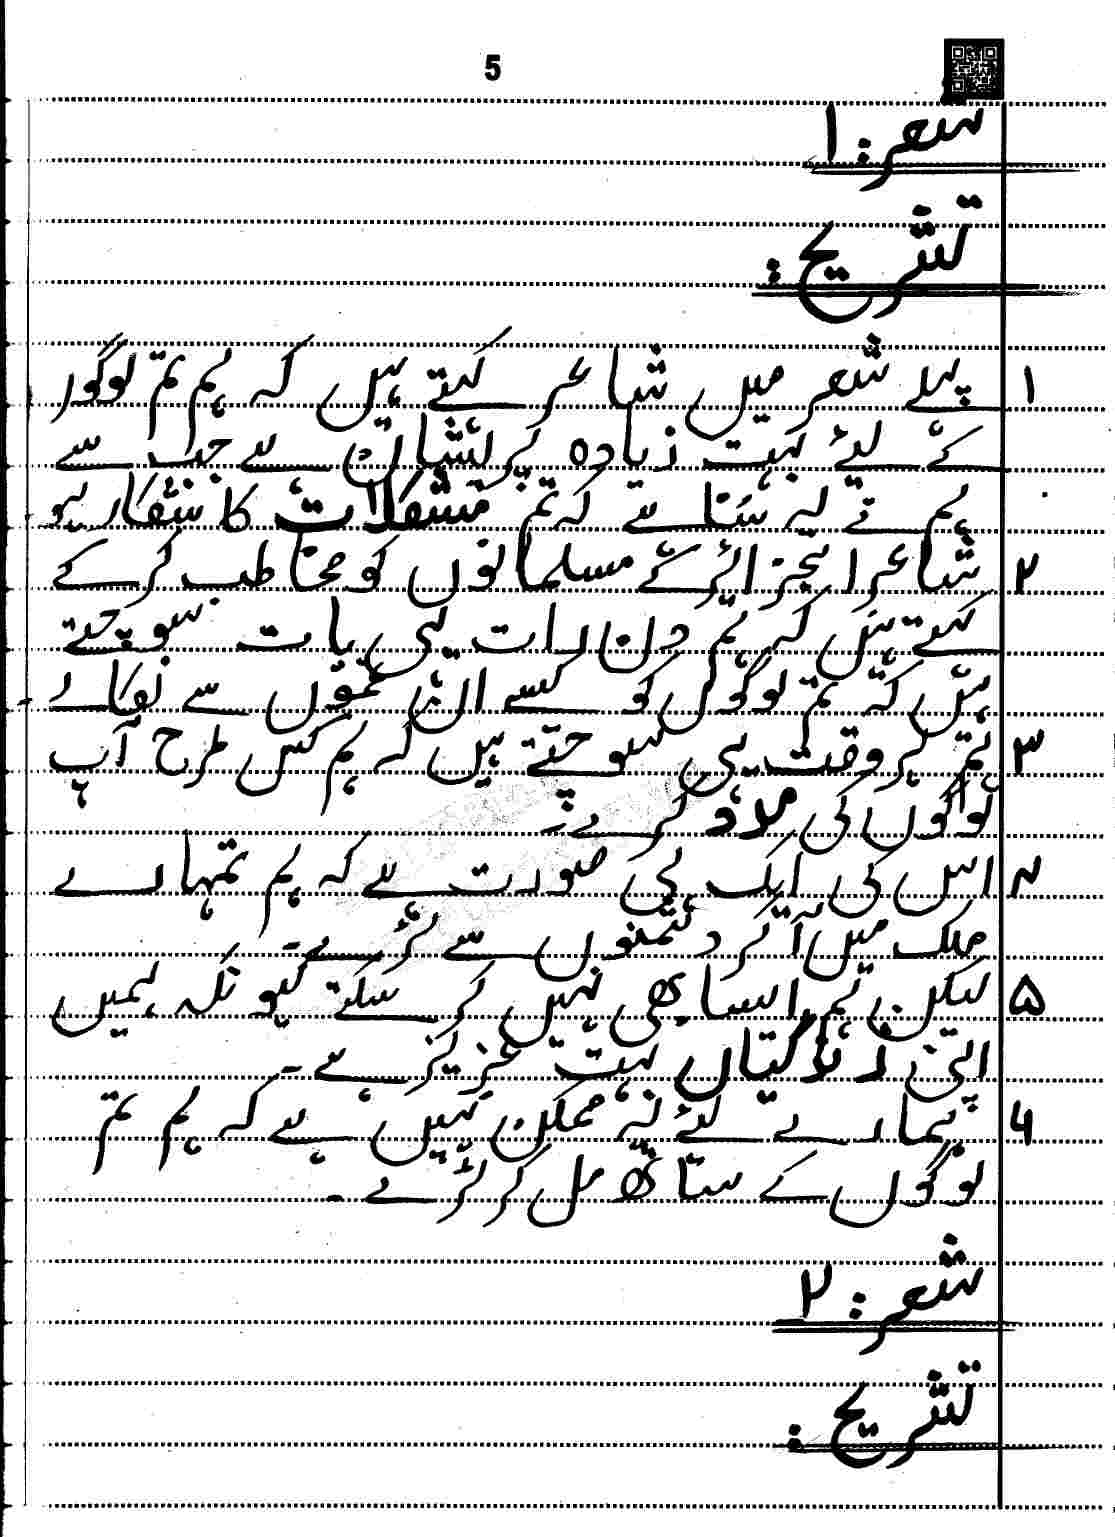 5
شعر: ۱
تشریح:
۱ پہلے شعر میں شاعر کہتے ہیں کہ ہم تم لوگوں
کے لئے بہت زیادہ پریشان ہے جب سے
ہم نے یہ سنا ہے کہ تم مشکلات کا شکار ہو
۲ شاعر الجزائر کے مسلمانوں کو مخاطب کر کے
کہتے ہیں کہ ہم دن رات یہی بات سوچتے
ہیں کہ تم لوگوں کو کیسے ان غموں سے نکالے
۳ ہم ہر وقت یہی سوچتے ہیں کہ ہم کس طرح آپ
لوگوں کی مدد کرے۔
۴ اس کی ایک ہی صورت ہے کہ ہم تمہارے
ملک میں آ کر دشمنوں سے لڑے۔
۵ لیکن ہم ایسا بھی نہیں کر سکتے کیونکہ ہمیں
اپنی زندگیاں بہت عزیز ہے۔
۶ ہمارے لئے یہ ممکن نہیں ہے کہ ہم تم
لوگوں کے ساتھ مل کر لڑے۔
شعر: ۲
تشریح: